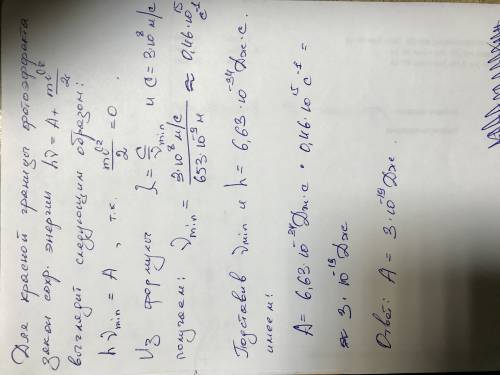 Для красной границы фотоэффекта
закон сохр. энергии hν = A + mv²/2
выглядит следующим образом:
hν min = A, т.к. mv²/2 = 0.
Из формулы λ = c/ν min и c = 3·10⁸ м/с
получаем: ν min = 3·10⁸ м/с / 653·10⁻⁹ м ≈ 0,46·10¹⁵ с⁻¹
Подставив ν min и h = 6,63·10⁻³⁴ Дж·с.
имеем:
A = 6,63·10⁻³⁴ Дж·с · 0,46·10¹⁵ с⁻¹ =
≈ 3·10⁻¹⁹ Дж
Ответ: A = 3·10⁻¹⁹ Дж.